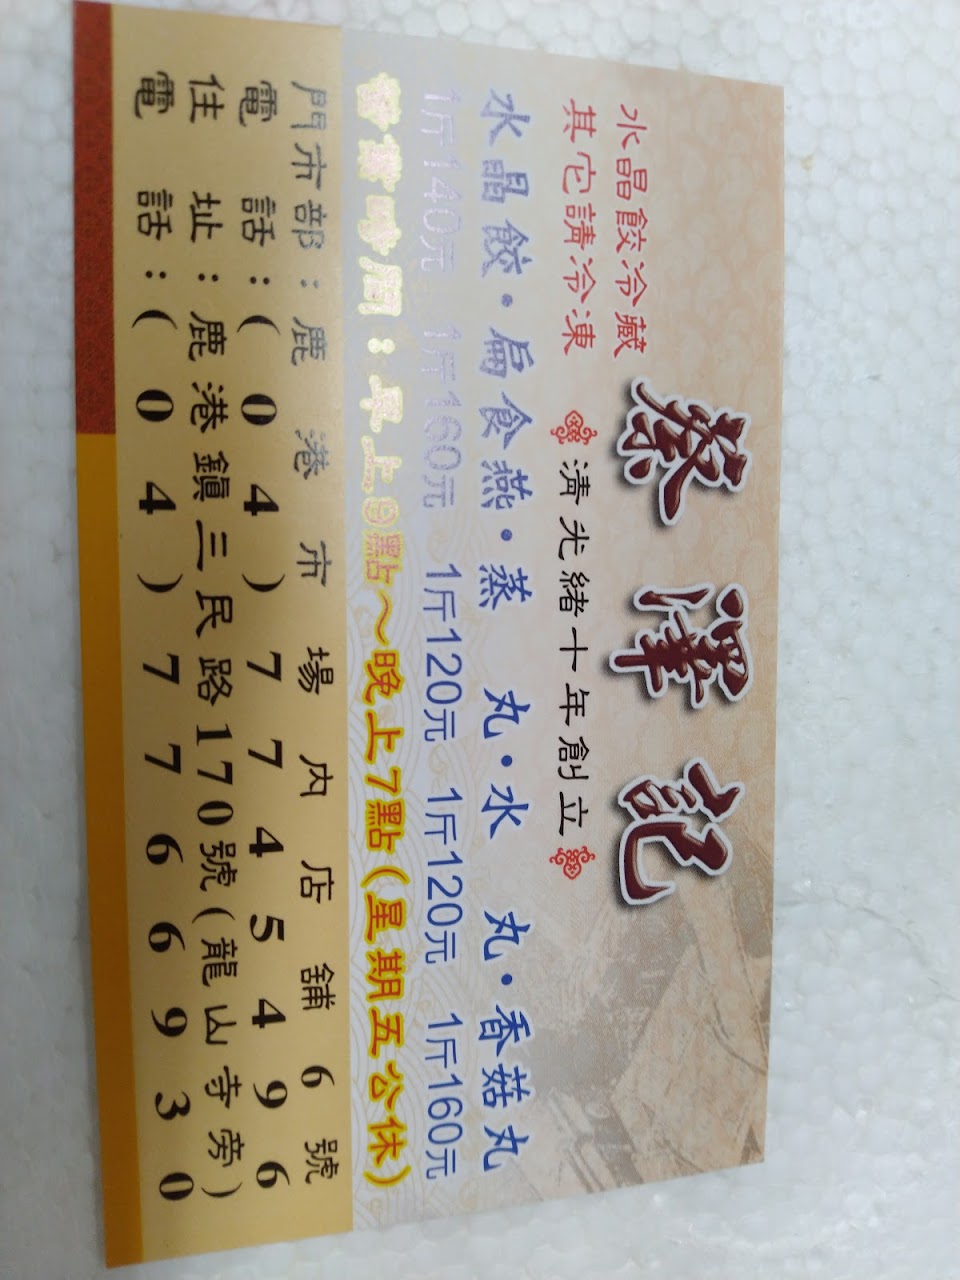 水晶餃冷藏
其它請冷凍
蔡澤記
清光緒十年創立
水晶餃・扁食燕・蒸丸・水丸・香菇丸
1斤140元 1斤160元 1斤120元 1斤120元 1斤160元
營業時間:早上9點~晚上7點(星期五公休)
門市部:鹿港市場內店舖6號
電話:(04)7745496
住址:鹿港鎮三民路170號(龍山寺旁)
電話:(04)7766930